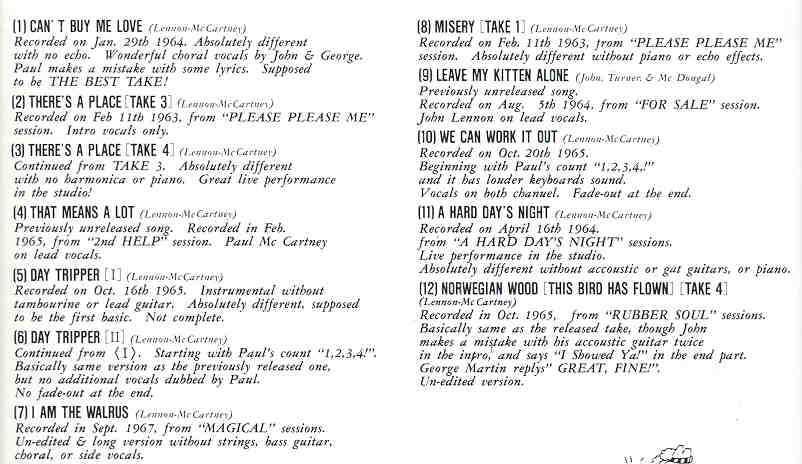 (1) CAN'T BUY ME LOVE (Lennon-McCartney)
Recorded on Jan. 29th 1964. Absolutely different
with no echo. Wonderful choral vocals by John & George.
Paul makes a mistake with some lyrics. Supposed
to be THE BEST TAKE!
(2) THERE'S A PLACE [TAKE 3] (Lennon-McCartney)
Recorded on Feb 11th 1963, from "PLEASE PLEASE ME"
session. Intro vocals only.
(3) THERE'S A PLACE [TAKE 4] (Lennon-McCartney)
Continued from TAKE 3. Absolutely different
with no harmonica or piano. Great live performance
in the studio!
(4) THAT MEANS A LOT (Lennon-McCartney)
Previously unreleased song. Recorded in Feb.
1965, from "2nd HELP" session. Paul Mc Cartney
on lead vocals.
(5) DAY TRIPPER [I] (Lennon-McCartney)
Recorded on Oct. 16th 1965. Instrumental without
tambourine or lead guitar. Absolutely different, supposed
to be the first basic. Not complete.
(6) DAY TRIPPER [II] (Lennon-McCartney)
Continued from ⟨I⟩. Starting with Paul's count "1,2,3,4!".
Basically same version as the previously released one,
but no additional vocals dubbed by Paul.
No fade-out at the end.
(7) I AM THE WALRUS (Lennon-McCartney)
Recorded in Sept. 1967, from "MAGICAL" sessions.
Un-edited & long version without strings, bass guitar,
choral, or side vocals.
(8) MISERY [TAKE 1] (Lennon-McCartney)
Recorded on Feb. 11th 1963, from "PLEASE PLEASE ME"
session. Absolutely different without piano or echo effects.
(9) LEAVE MY KITTEN ALONE (John, Turner, & Mc Dougal)
Previously unreleased song.
Recorded on Aug. 5th 1964, from "FOR SALE" session.
John Lennon on lead vocals.
(10) WE CAN WORK IT OUT (Lennon-McCartney)
Recorded on Oct. 20th 1965.
Beginning with Paul's count "1,2,3,4,!"
and it has louder keyboards sound.
Vocals on both channel. Fade-out at the end.
(11) A HARD DAY'S NIGHT (Lennon-McCartney)
Recorded on April 16th 1964.
from "A HARD DAY'S NIGHT" sessions.
Live performance in the studio.
Absolutely different without accoustic or gat guitars, or piano.
(12) NORWEGIAN WOOD [THIS BIRD HAS FLOWN] [TAKE 4]
(Lennon-McCartney)
Recorded in Oct. 1965, from "RUBBER SOUL" sessions.
Basically same as the released take, though John
makes a mistake with his accoustic guitar twice
in the inpro, and says "I Showed Ya!" in the end part.
George Martin replys" GREAT, FINE!".
Un-edited version.